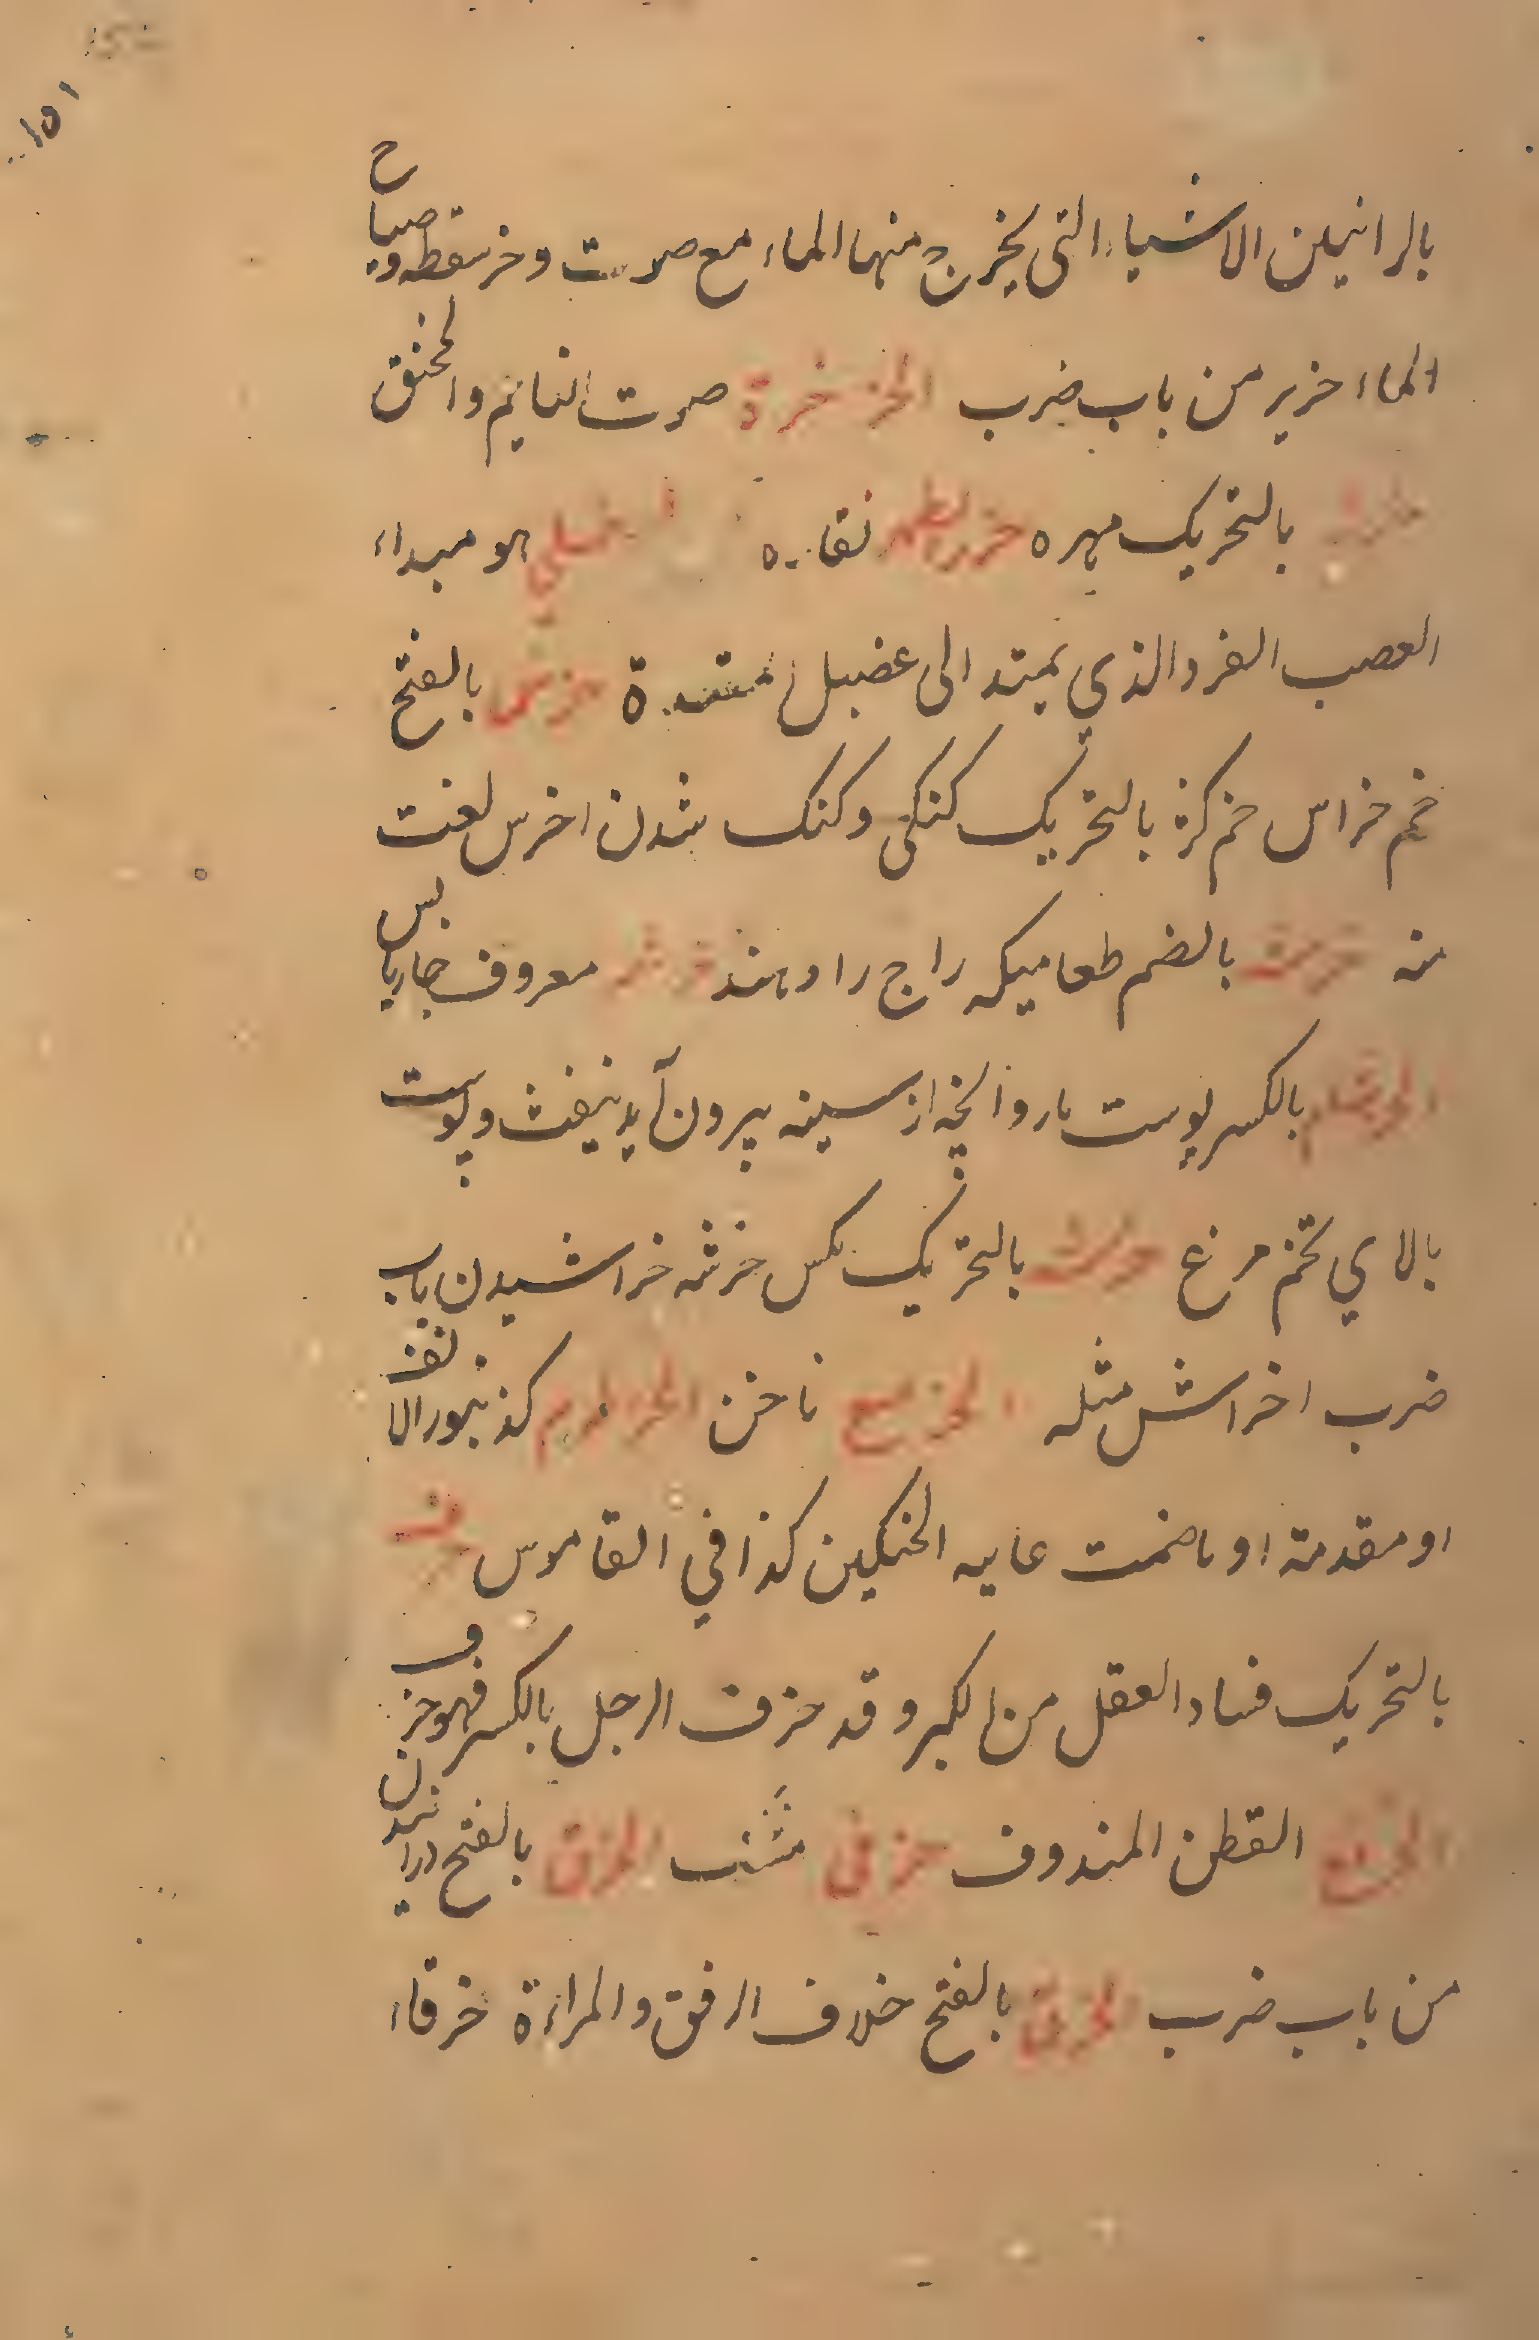 ١٥١
بالرانيلن الاشياء التى يخرج منها الماء مع صوت وخر سقط وصياح
الماء خرير من باب ضرب الخرخرة صوت النايم والمخنق
بالتحريك مهره خريطه نقاره هو مبداء
العصب الفرد الذي يمتد الى عضل المقعدة خرس بالفتح
خم خراس خم كرة بالتحريك كنكى وكنك شدن اخرس لغت
منه خرسه بالضم طعاميكه راج را دهند معروف جاريابس
الخرشا بالكسر پوست مار وآنچه از سينه بيرون آيد بنفث وپوست
بالاي تخم مرغ خرشه بالتحريك مكس خرشه خراشيدن باب
ضرب اخراش مثله ناخن الخرطوم كزنبور الانف
او مقدمة او ماضمت عليه الحنكين كذا في القاموس
بالتحريك فساد العقل من الكبر وقد خرف الرجل بالكسر فهو خرف
الخرفع القطن المندوف خرفى مشنب الخرق بالفتح درانيدن
من باب ضرب الخرق بالفتح خلاف الرفق والمراءة خرقاء